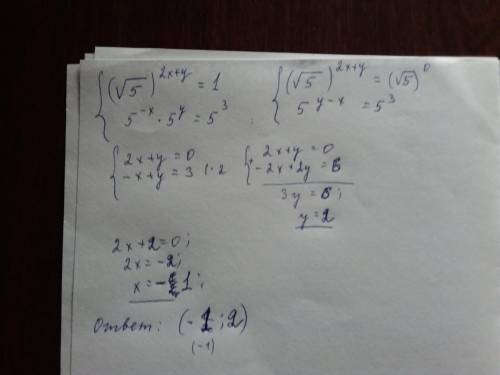 { (√5)^(2x+y) = 1
5^(-x) · 5^y = 5^3 ;
{ (√5)^(2x+y) = (√5)^0
5^(y-x) = 5^3
{ 2x+y=0
-x+y=3 |·2
{ 2x+y=0
-2x+2y=6
3y=6;
y=2
2x+2=0;
2x=-2;
x=-1;
Ответ: (-1;2)
(-1)